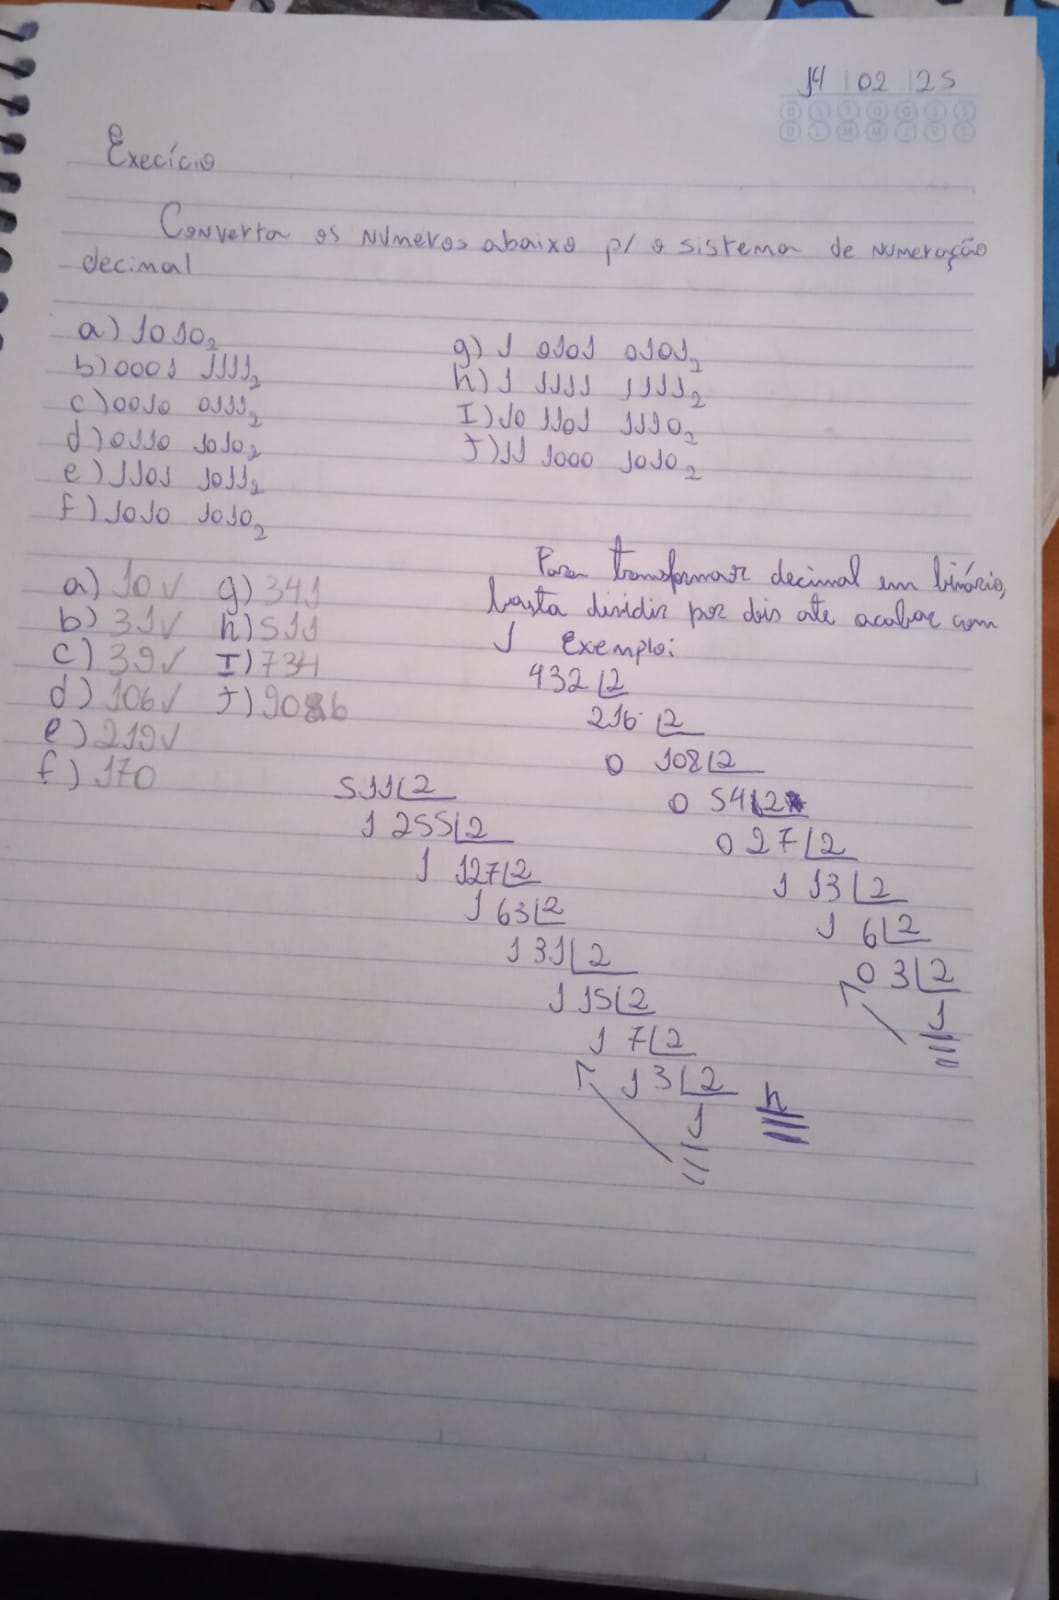 14 | 02 | 25
Execício
Converta os números abaixo p/ o sistema de numeração
decimal
a) 1010₂
b) 0001 1111₂
c) 0010 0111₂
d) 0110 1010₂
e) 1101 1011₂
f) 1010 1010₂
g) 1 0101 0101₂
h) 1 1111 1111₂
I) 10 1101 1110₂
J) 11 1000 1010₂
a) 10 ✓
b) 31 ✓
c) 39 ✓
d) 106 ✓
e) 219 ✓
f) 170
g) 341
h) 511
I) 734
J) 906
Para transformar decimal em binário,
basta dividir por dois ate acabar com
1 Exemplo:
432 2
216 2
0 108 2
0 54 2
0 27 2
1 13 2
1 6 2
0 3 2
1
511 2
1 255 2
1 127 2
1 63 2
1 31 2
1 15 2
1 7 2
1 3 2
1
h